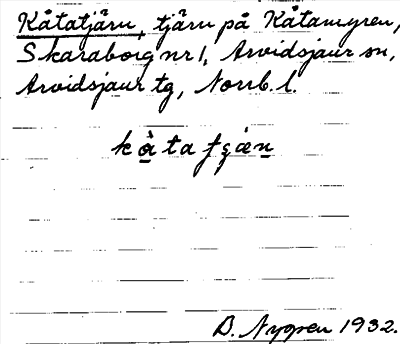 Kåtatjärn, tjärn på Kåtamyren,
Skaraborg nr 1, Arvidsjaur sn,
Arvidsjaur tg, Norrb. l.
D. Nygren 1932.